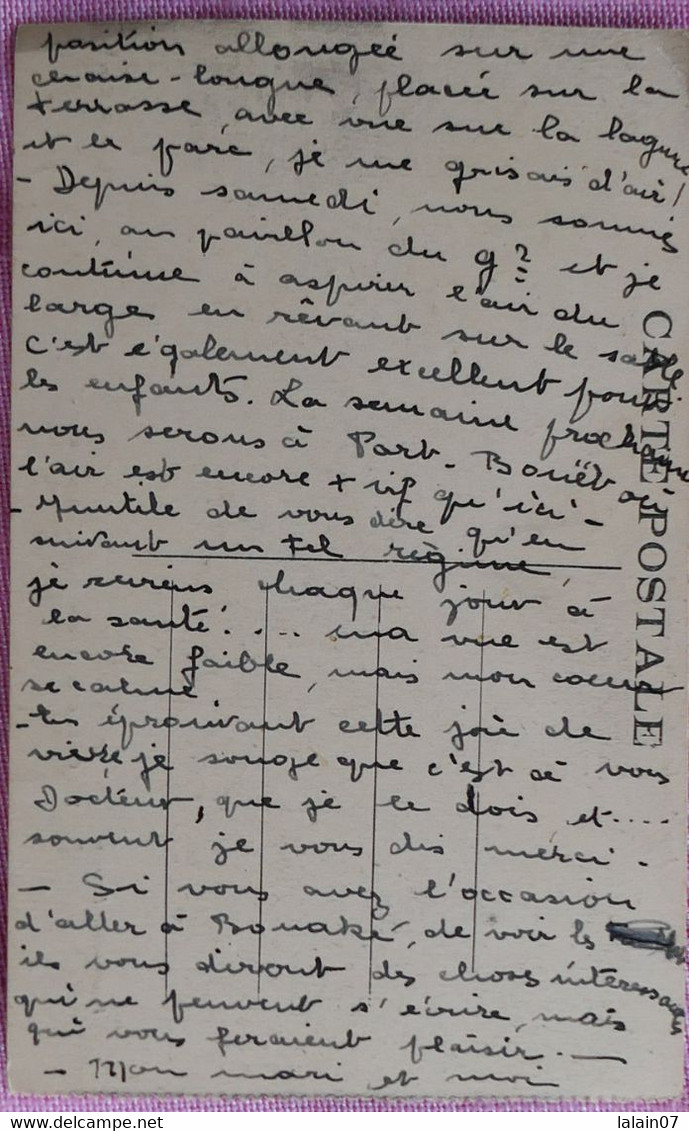 position allongée sur une
chaise-longue, placée sur la
terrasse, avec vue sur la lagune
et le parc, je me grisais d'air!
- Depuis samedi, nous sommes
ici, au pavillon du g? et je
continue à aspirer l'air du
large en rêvant sur le sable.
C'est également excellent pour
les enfants. La semaine prochaine
nous serons à Port-Bouët où
l'air est encore + vif qu'ici -
- Inutile de vous dire qu'en
suivant un tel régime,
je reviens chaque jour à
la santé!.... ma vue est
encore faible, mais mon coeur
se calme
- En éprouvant cette joie de
vivre je songe que c'est à vous
Docteur, que je le dois et....
souvent je vous dis merci.
- Si vous avez l'occasion
d'aller à Bouaké, de voir les
ils vous diront des choses intéressantes
qui ne peuvent s'écrire, mais
qui vous feraient plaisir. -
- Mon mari et moi
CARTE POSTALE
lalain07